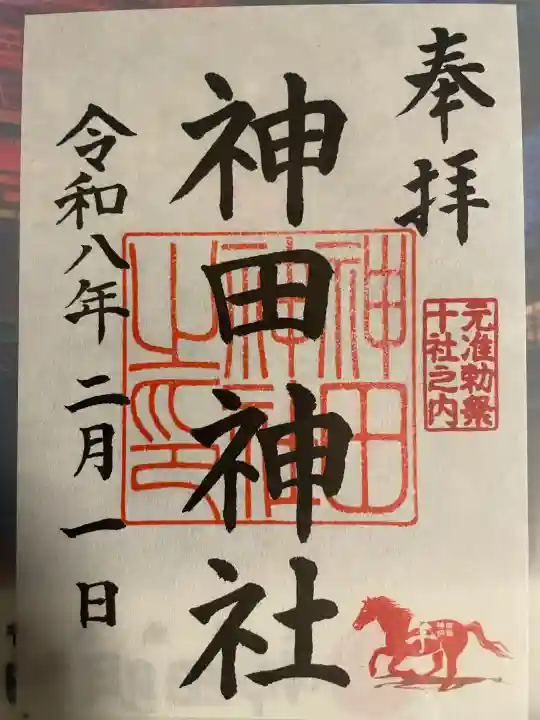 奉拝
元准勅祭
十社之内
神田神社
神田
神社
之印
令和八年二月一日